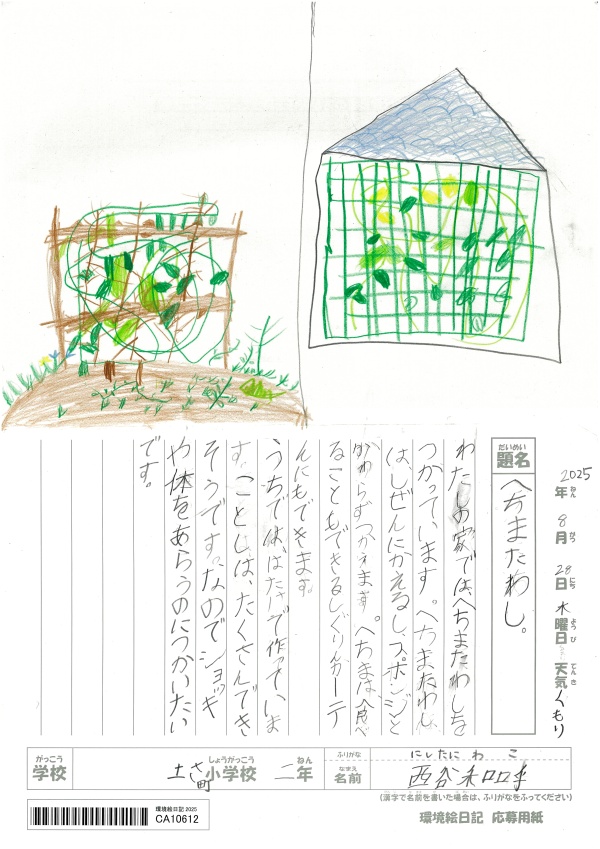 2025年ねん 8月がつ 28日にち 水曜日ようび 天気てんき くもり
だいめい
題名
へちまたわし。
わたしの家では、へちまたわしを
つかっています。へちまたわし
は、しぜんにかえるし、スポンジと
かわらずつかえます。へちまは、食べ
ることもできるしぐりんカーテ
んにもできます。
うちでは、はたけで作っていま
す。ことしは、たくさんでき
そうです。なのでショッキ
や体をあらうのにつかいたい
です。
がっこう
学校
しょうがっこう ねん
小学校 二年
ふりがな にしたに わ こ
なまえ
名前 西谷和呼
(漢字で名前を書いた場合は、ふりがなをふってください)
環境絵日記 2025
CA10612
環境絵日記 応募用紙